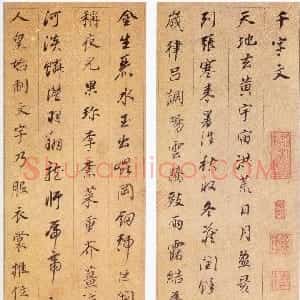 千字文
天地玄黃宇宙洪荒日月盈昃
列張寒来暑往秋收冬藏閏餘
歲律呂調陽雲騰致雨露結為
金生麗水玉出崑岡劍號巨
稱夜光果珍李柰菜重芥薑
河淡鱗潛羽翔龍師火帝
人皇始制文字乃服衣裳推位